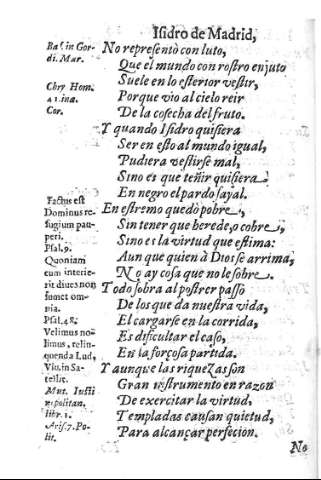 Isidro de Madrid,
Bas. in Gor-
di. Mar.
Chry Hom.
41. in 2.
Cor.
Factus est
Dominus re-
fugium pau-
peri.
Psal. 9.
Quoniam
cum interie-
rit diues non
sumet om-
nia.
Psal. 48.
Velimus no-
limus, relin-
quenda Lud,
Vio. in Sa-
telic.
Mut. Iusti
nopolitan.
libr. 1.
Aris. 7. Po-
lit.
No representò con luto,
Que el mundo con rostro enjuto
Suele en lo esterior vestir,
Porque vio al cielo reir
De la cosecha del fruto.
Y quando Isidro quisiera
Ser en esto al mundo igual,
Pudiera vestirse mal,
Sino es que teñir quisiera
En negro el pardo sayal.
En estremo quedò pobre,
Sin tener que herede, o cobre,
Sino es la virtud que estima:
Aun que quien à Dios se arrima,
No ay cosa que no le sobre.
Todo sobra al postrer passo
De los que da nuestra vida,
El cargarse en la corrida,
Es dificultar el caso,
En la forçosa partida.
Y aunque las riquezas son
Gran instrumento en razon
De exercitar la virtud,
Templadas causan quietud,
Para alcançar perfecion.
No